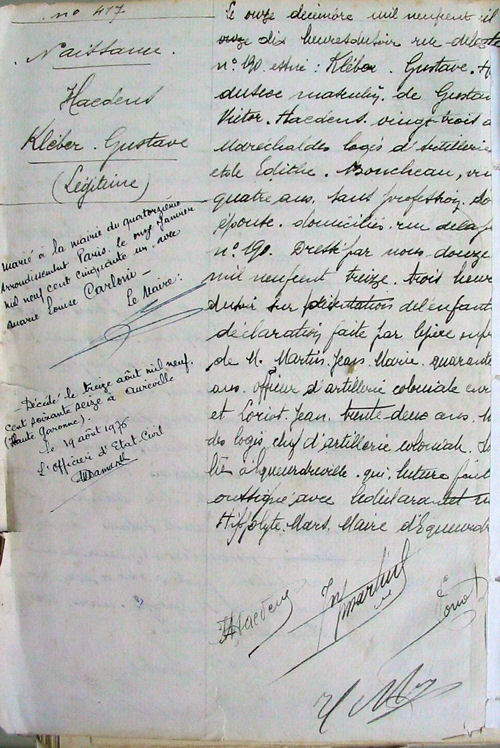 no 417
Naissance.
Haedens
Kléber. Gustave
(Légitime)
Marié à la mairie du quatorzième
arrondissement Paris. le onze janvier
mil neuf cent cinquante un. avec
Marie Louise Carlorie
Le Maire:
Décédé le treize août mil neuf.
cent soixante seize à Aureville
(Haute Garonne)
le 19 août 1976
L'Officier d'Etat Civil
Le onze décembre mil neufcent
onze dix heures du soir rue de la
n° 190. est né: Kléber. Gustave. H
du sexe masculin, de Gustav
Victor. Haedens. vingt trois a
Maréchal des logis d'artillerie
et de Edithe. Boucheau, vi
quatre ans. sans profession, so
épouse. domiciliés rue de la
n° 190. Dressé par nous douze
mil neufcent treize. trois heur
du soir sur présentation de l'enfant
déclaration faite par le père
de M. Martin, Jean. Marie. quarante
ans. officier d'artillerie coloniale
et Loriot. Jean. trente deux ans. M
des logis chef d'artillerie coloniale.
à Equeurdreville. qui, lecture fait
avec le déclarant
Hippolyte. Mars. Maire d'Equeurdr
Haedens
Martin